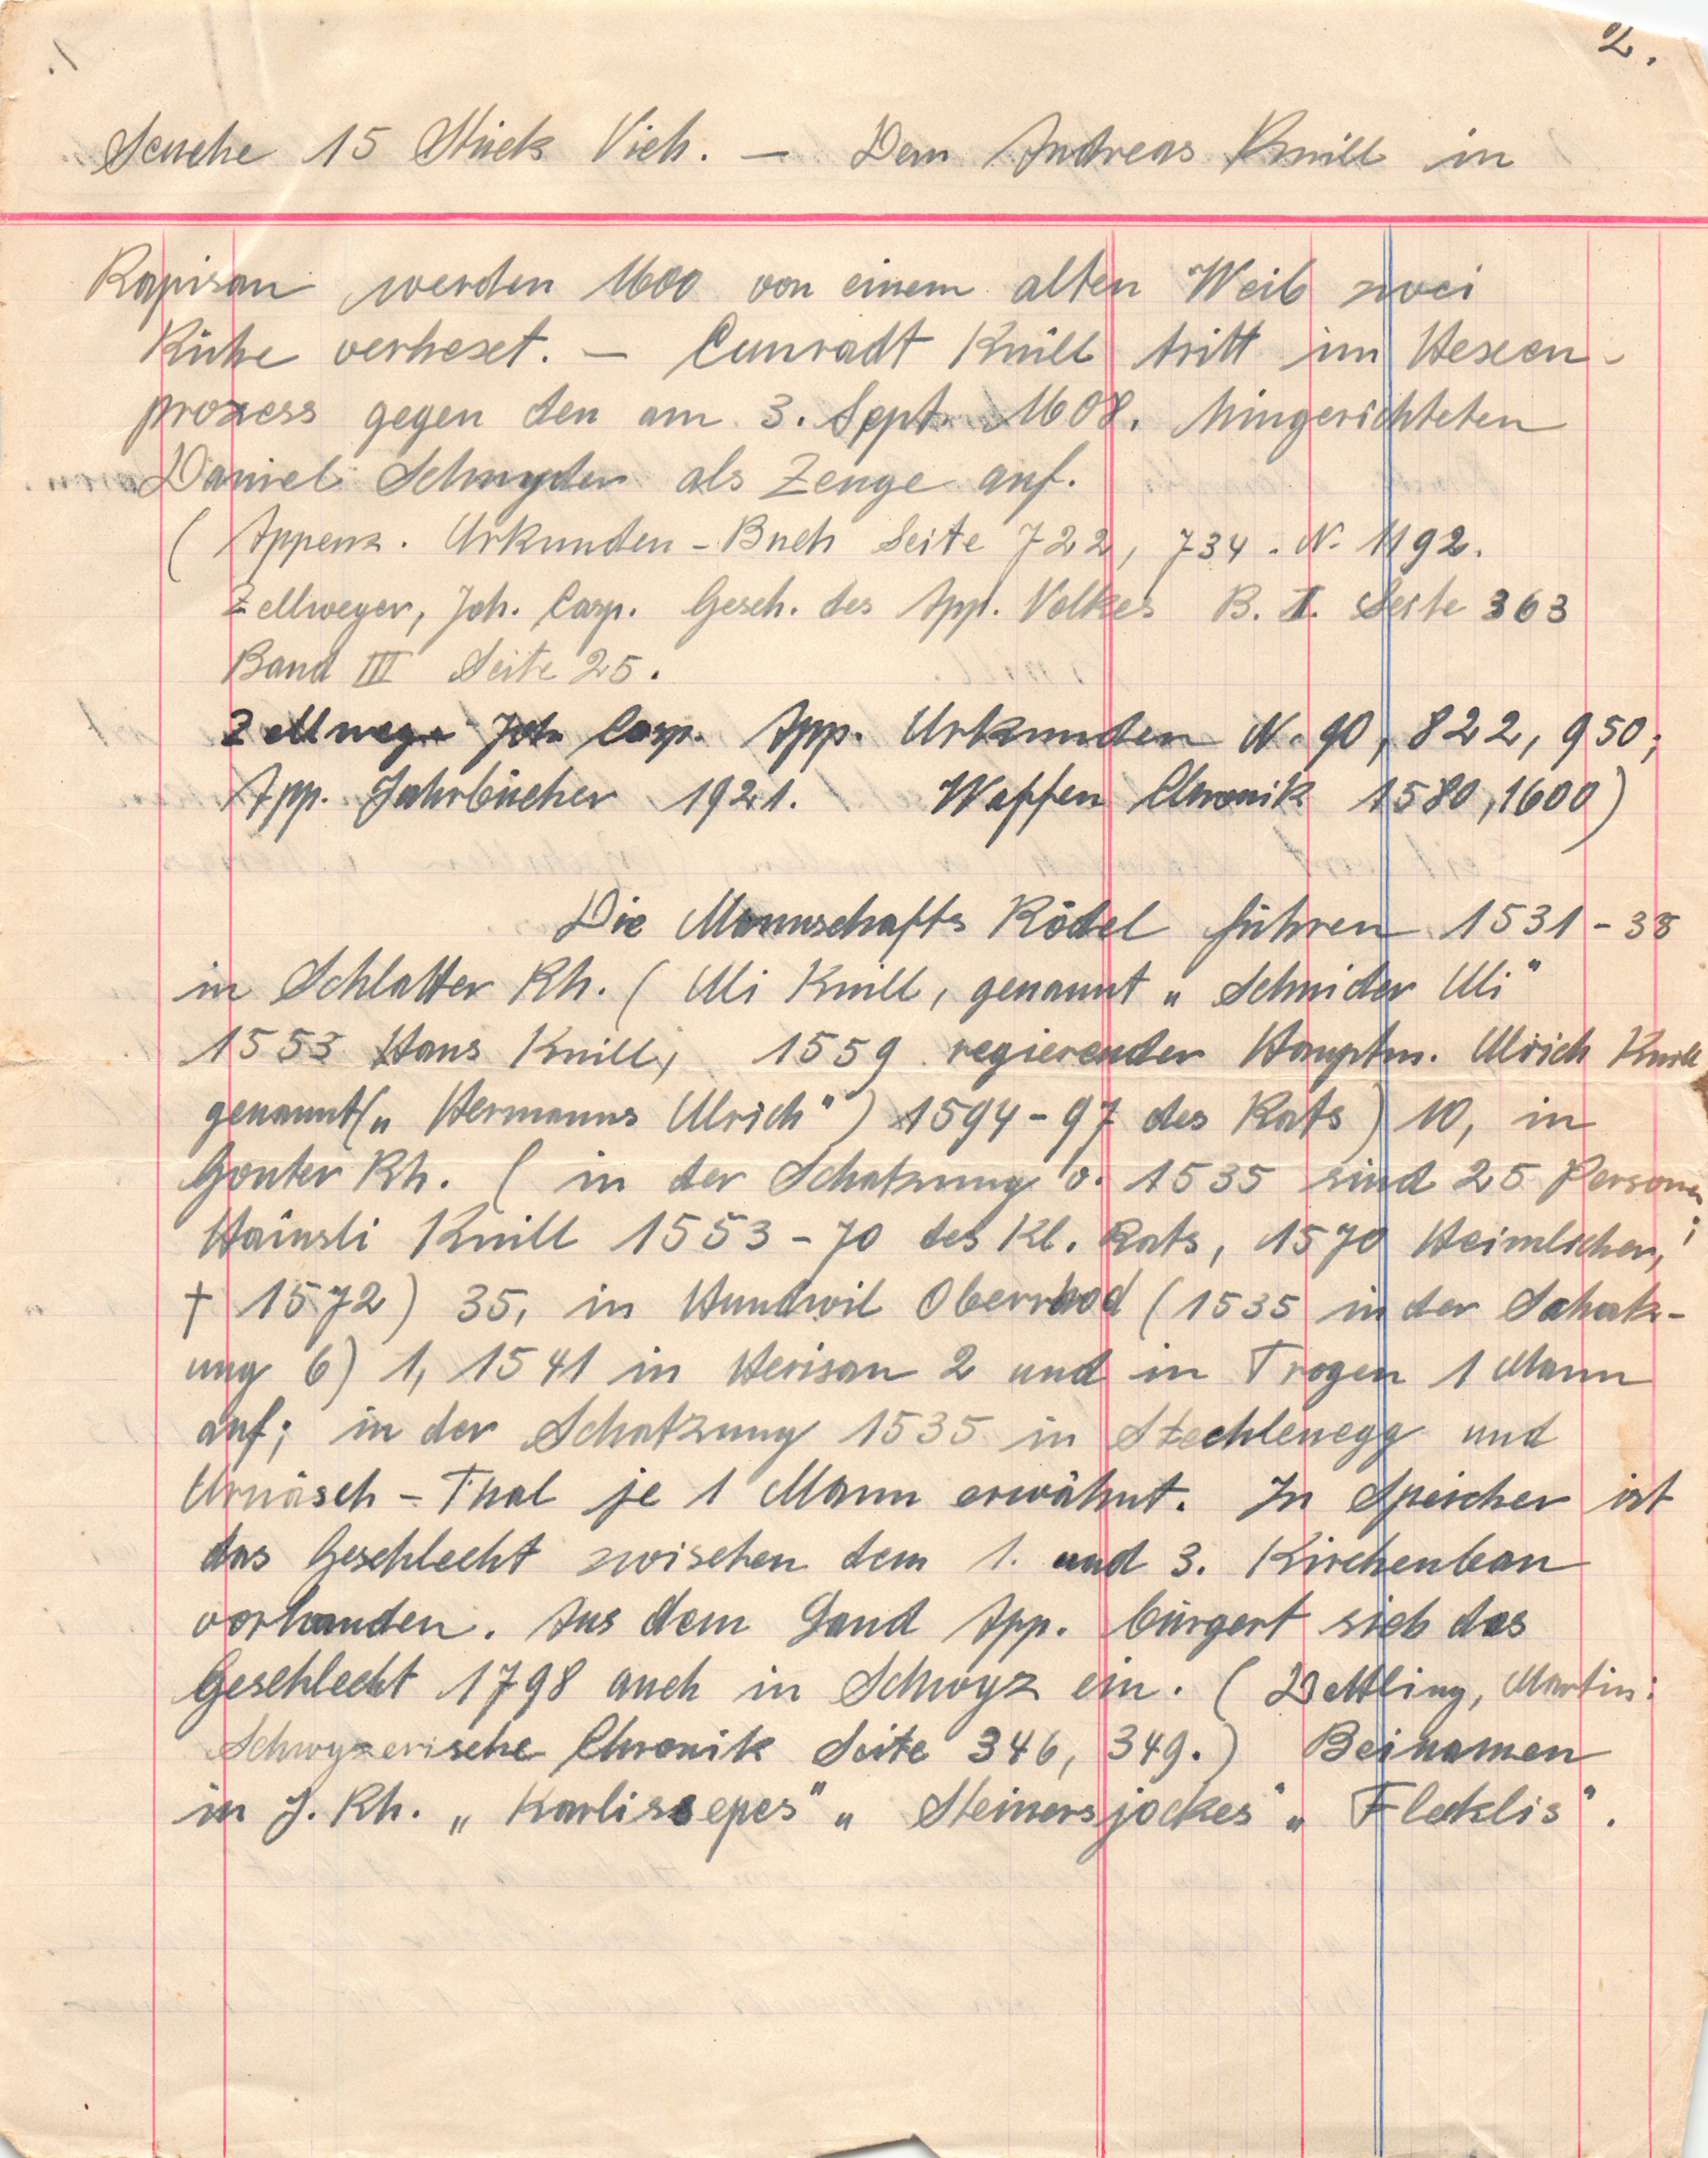 2.
Seuche 15 Stück Vieh. — Dem Andreas Knill in
Rapisau werden 1600 von einem alten Weib zwei
Kühe verhexet. — Cunradt Knill tritt im Hexen-
prozess gegen den am 3. Sept. 1608. hingerichteten
Daniel Schnyder als Zeuge auf.
( Appenz. Urkunden-Buch Seite 722, 734. N. 1192.
Zellweger, Joh. Casp. Gesch. des App. Volkes B. II. Seite 363
Band III Seite 25.
Zellweger Joh Casp. App. Urkunden N. 90, 822, 950;
App. Jahrbücher 1921. Waffen Chronik 1580, 1600)
Die Mannschafts Rödel führen 1531-38
in Schlatter Rh. ( Uli Knill, genannt „ Schnider Uli"
1553 Hans Knill, 1559 regierender Hauptm. Ulrich Knill
genannt („ Hermanns Ulrich") 1594-97 des Rats) 10, in
Gonter Rh. ( in der Schatzung v. 1535 sind 25 Personen;
Hainsli Knill 1553-70 des Kl. Rats, 1570 Heimlicher,
† 1572) 35, in Hundwil Oberrhod (1535 in der Schatz-
ung 6) 1, 1541 in Herisau 2 und in Trogen 1 Mann
auf; in der Schatzung 1535 in Stechlenegg und
Urnäsch-Thal je 1 Mann erwähnt. In Speicher ist
das Geschlecht zwischen dem 1. und 3. Kirchenbau
vorhanden. Aus dem Land App. bürgert sich das
Geschlecht 1798 auch in Schwyz ein. ( Dettling, Martin:
Schwyzerische Chronik Seite 346, 349.) Beinamen
in J. Rh. „ Karlissepes" „ Steinersjockes" „ Flecklis".